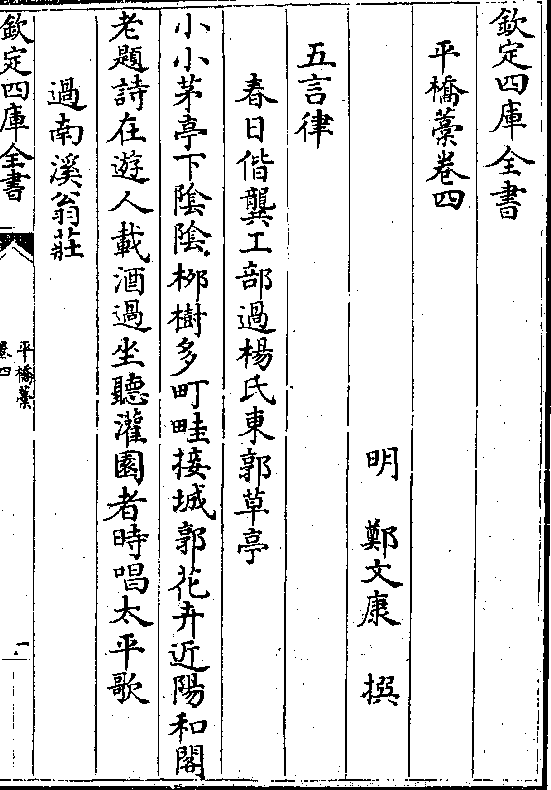 欽定四庫全書
平橋藁卷四
明 鄭文康 撰
五言律
春日偕龔工部過楊氏東郭草亭
小小茅亭下陰陰柳樹多町畦接城郭花卉近陽和閣
老題詩在遊人載酒過坐聽灌園者時唱太平歌
過南溪翁莊
欽定四庫全書
平橋藁
卷四
一